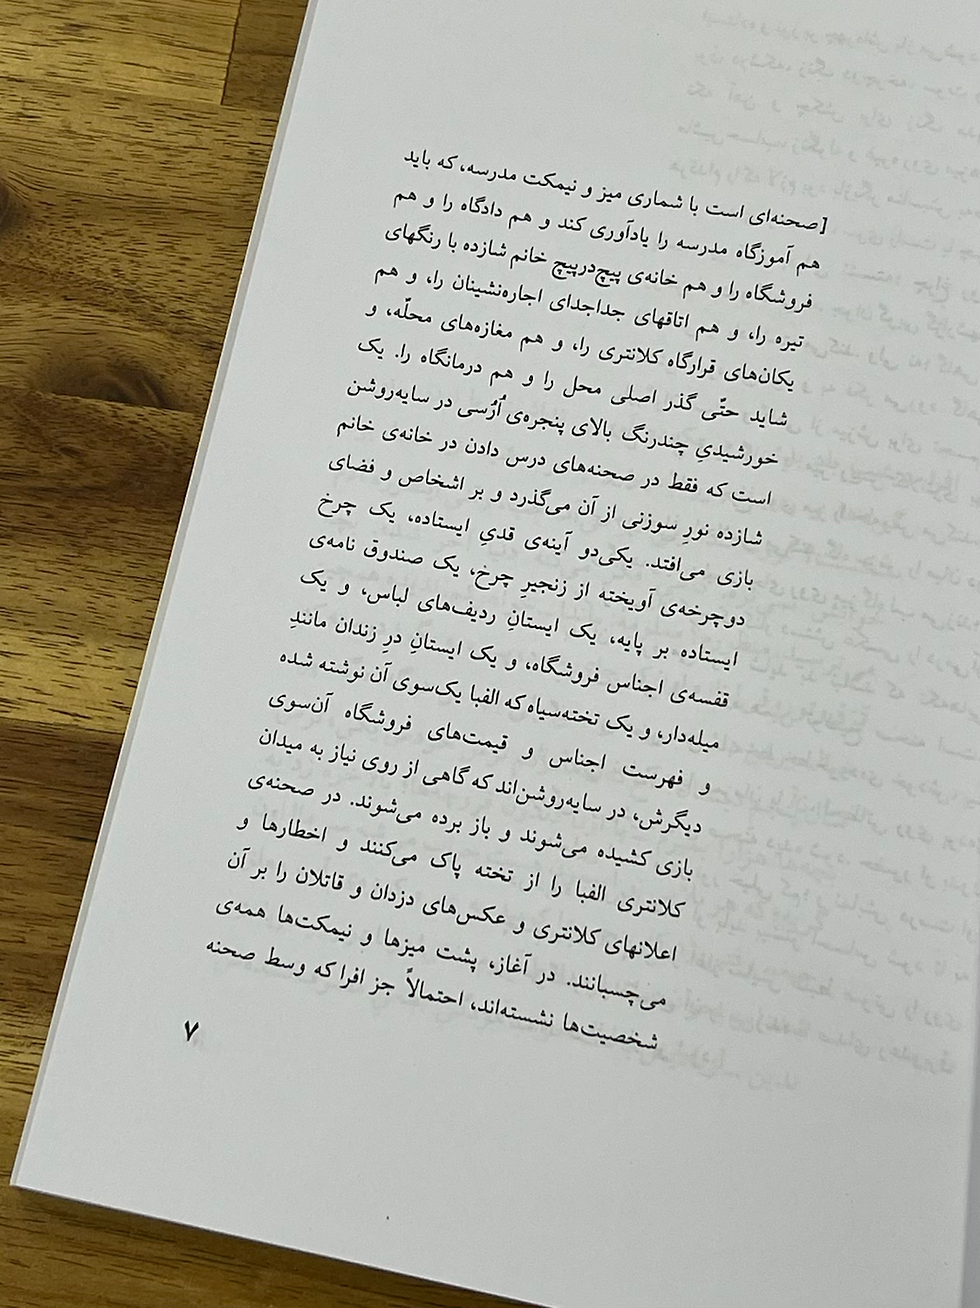 [صحنه‌ای است با شماری میز و نیمکت مدرسه، که باید
هم آموزگاه مدرسه را یادآوری کند و هم دادگاه را و هم
فروشگاه را و هم خانه‌ی پیچ‌درپیچ خانم شازده با رنگهای
تیره را، و هم اتاقهای جداجدای اجاره‌نشینان را، و هم
یکان‌های قرارگاه کلانتری را، و هم مغازه‌های محلّه، و
شاید حتّی گذر اصلی محل را و هم درمانگاه را. یک
خورشیدیِ چندرنگ بالای پنجره‌ی اُرُسی در سایه‌روشن
است که فقط در صحنه‌های درس دادن در خانه‌ی خانم
شازده نورِ سوزنی از آن می‌گذرد و بر اشخاص و فضای
بازی می‌افتد. یکی‌دو آینه‌ی قدیِ ایستاده، یک چرخ
دوچرخه‌ی آویخته از زنجیرِ چرخ، یک صندوق نامه‌ی
ایستاده بر پایه، یک ایستانِ ردیف‌های لباس، و یک
قفسه‌ی اجناس فروشگاه، و یک ایستانِ درِ زندان مانندِ
میله‌دار، و یک تخته‌سیاه که الفبا یک‌سوی آن نوشته شده
و فهرست اجناس و قیمت‌های فروشگاه آن‌سوی
دیگرش، در سایه‌روشن‌اند که گاهی از روی نیاز به میدان
بازی کشیده می‌شوند و باز برده می‌شوند. در صحنه‌ی
کلانتری الفبا را از تخته پاک می‌کنند و اخطارها و
اعلانهای کلانتری و عکس‌های دزدان و قاتلان را بر آن
می‌چسبانند. در آغاز، پشت میزها و نیمکت‌ها همه‌ی
شخصیت‌ها نشسته‌اند، احتمالاً جز افرا که وسط صحنه
۷